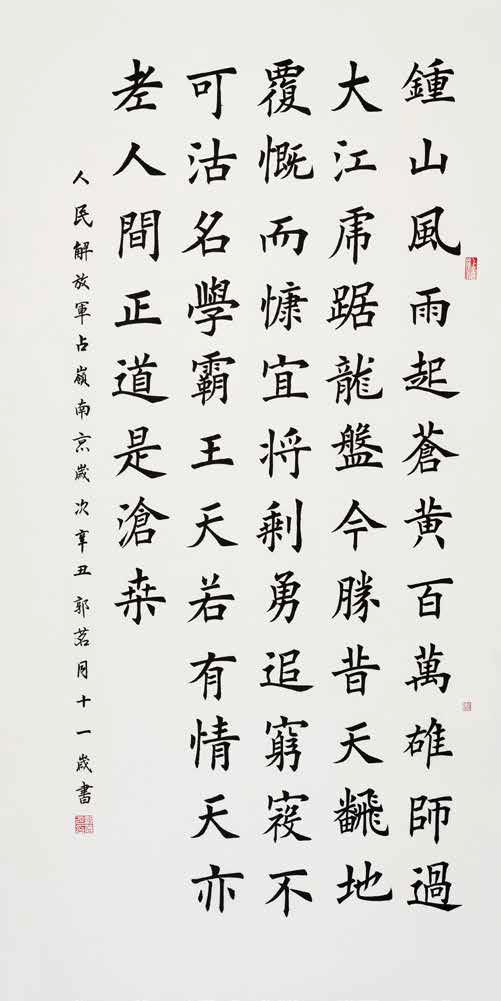 鍾山風雨起蒼黄百萬雄師過
大江虎踞龍盤今勝昔天飜地
覆慨而慷宜将剩勇追窮寇不
可沽名學霸王天若有情天亦
老人間正道是滄桒
人民解放軍占嶺南京歲次辛丑郭茗月十一歲書